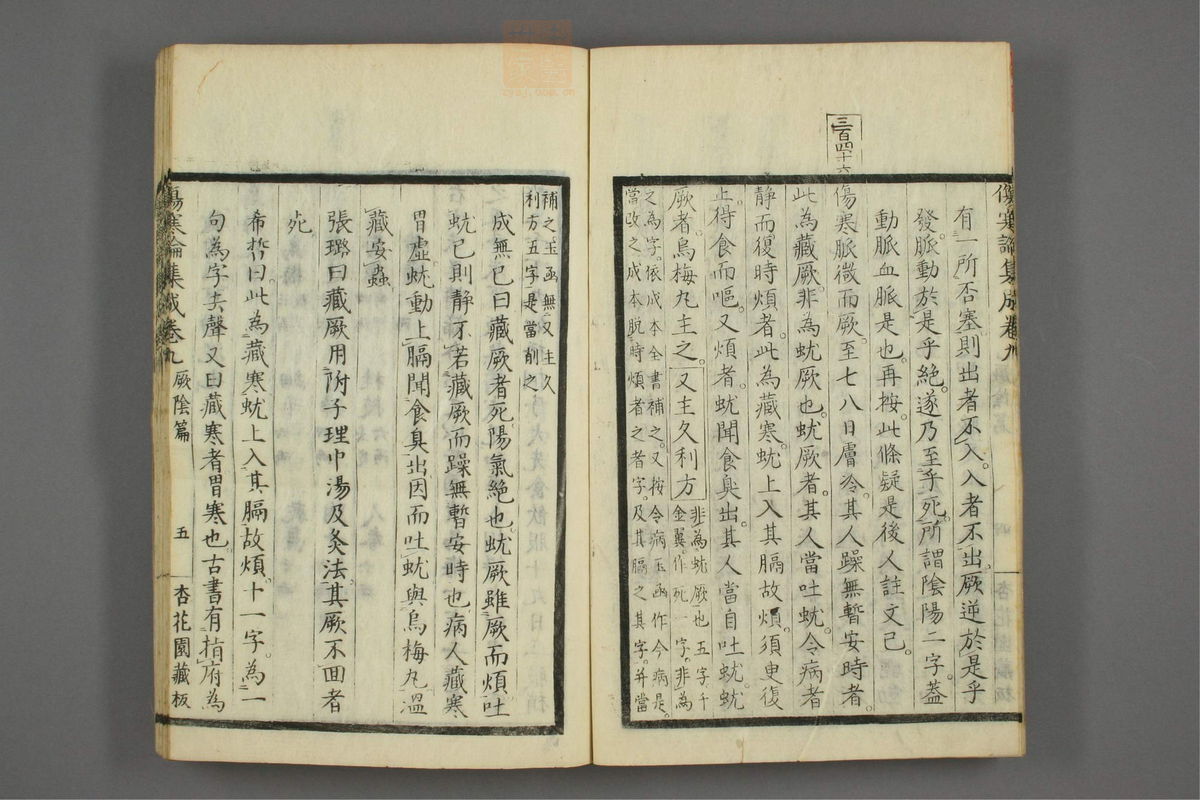 三百四十六
傷寒論集成卷九
有一所否塞則出者不入入者不出厥逆於是乎
發脈動於是乎絕遂乃至乎死所謂陰陽二字蓋
動脈血脈是也再按此條疑是後人註文已
傷寒脈微而厥至七八日膚冷其人躁無暫安時者
此為藏厥非為蚘厥也蚘厥者其人當吐蚘令病者
靜而復時煩者此為藏寒蚘上入其膈故煩須臾復
止得食而嘔又煩者蚘聞食臭出其人當自吐蚘蚘
厥者烏梅丸主之又主久利方
非為蚘厥也五字千
金翼作死一字非為
之為字依成本全書補之又按令病玉函作今病是
當改之成本脫時煩者之者字及其膈之其字并當
補之玉函無又主久
利方五字是當削之
成無已曰藏厥者死陽氣絕也蚘厥雖厥而煩吐
蚘已則靜不若藏厥而躁無暫安時也病人藏寒
胃虛蚘動上膈聞食臭出因而吐蚘與烏梅丸溫
藏安蟲
張璐曰藏厥用附子理中湯及灸法其厥不回者
死
希哲曰此為藏寒蚘上入其膈故煩十一字為一
句為字去聲又曰藏寒者胃寒也古書有指府為
傷寒論集成卷九
厥陰篇
五
杏花園藏板